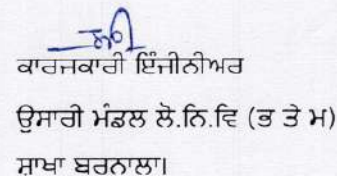 ਕਾਰਜਕਾਰੀ ਇੰਜੀਨੀਅਰ
ਉਸਾਰੀ ਮੰਡਲ ਲੋ.ਨਿ.ਵਿ (ਭ ਤੇ ਮ)
ਸ਼ਾਖਾ ਬਰਨਾਲਾ।